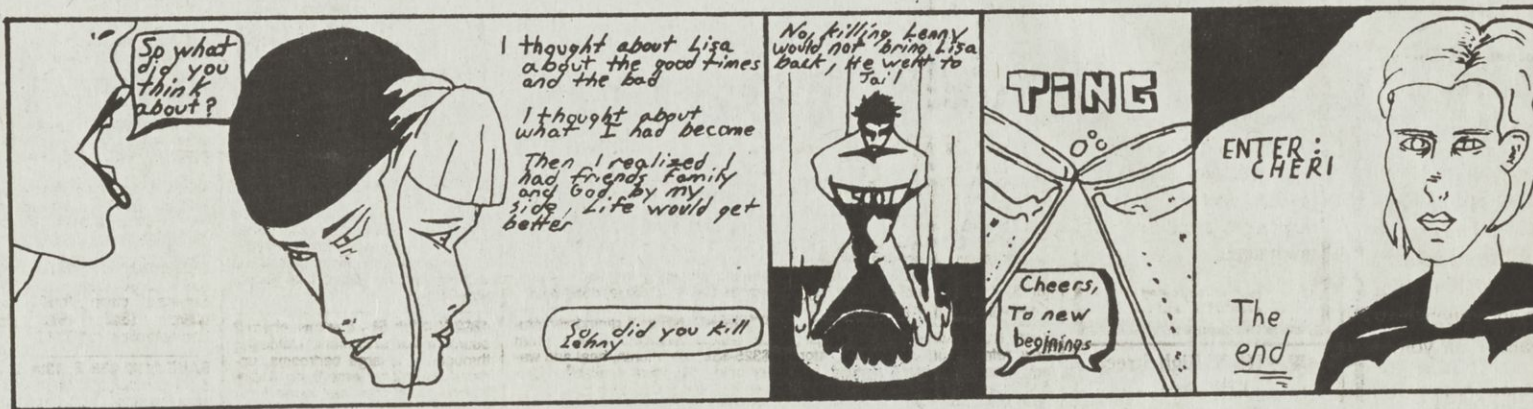 So what
did you
think
about?
I thought about Lisa
about the good times
and the bad
I thought about
what I had become
Then I realized I
had friends family
and God by my
side, Life would get
better
So, did you kill
No, killing Lenny
would not bring Lisa
back, He went to
Jail
TING
Cheers,
To new
beginnings
ENTER:
CHERI
The
end